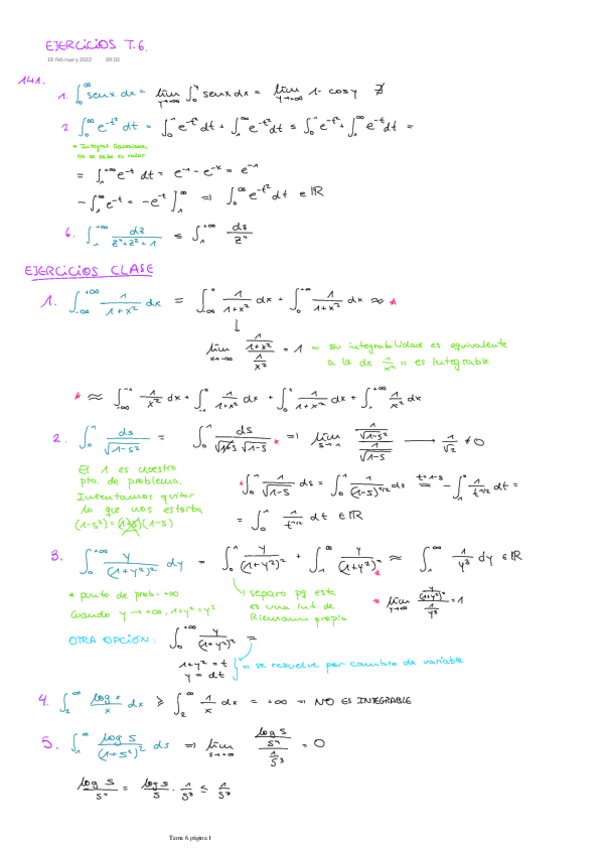 EJERCICIOS T.6.
18 february 2022 00:02
141.
1. ∫₀^∞ senx dx = lim_{y→+∞} ∫₀^y senx dx = lim_{y→+∞} 1 - cos y ∄
2 ∫₀^∞ e^{-t²} dt = ∫₀^1 e^{-t²} dt + ∫₁^∞ e^{-t²} dt ≤ ∫₀^1 e^{-t²} + ∫₁^∞ e^{-t} dt =
* Integral Gaussiana,
no se sabe su valor
= ∫₁^{+∞} e^{-t} dt = e^{-1} - e^{-x} = e^{-1}
- ∫₁^∞ e^{-t} = -e^{-t} ]₁^∞ ⇒ ∫₀^∞ e^{-t²} dt ∈ ℝ
6. ∫₁^{+∞} dz/(z⁴+z²+1) ≤ ∫₁^{+∞} dz/z⁴
EJERCICIOS CLASE
1. ∫_{-∞}^{+∞} 1/(1+x²) dx = ∫_{-∞}^0 1/(1+x²) dx + ∫₀^{+∞} 1/(1+x²) dx ≈ *
↓
lim_{x→-∞} (1/(1+x²))/(1/x²) = 1 → su integrabilidad es equivalente
a la de 1/x² ⇒ es integrable
* ≈ ∫_{-∞}^{-1} 1/x² dx + ∫_{-1}^0 1/(1+x²) dx + ∫₀^1 1/(1+x²) dx + ∫₁^{+∞} 1/x² dx
2. ∫₀^1 ds/√(1-s²) = ∫₀^1 ds/(√(1+s) √(1-s)) * ⇒ lim_{s→1} (1/√(1-s²))/(1/√(1-s)) → 1/√2 ≠ 0
El 1 es nuestro
pto. de problema.
Intentamos quitar
lo que nos estorba
(1-s²) = (1+s)(1-s)
* ∫₀^1 1/√(1-s) ds = ∫₀^1 1/(1-s)^{1/2} ds = t=1-s - ∫₁^0 1/t^{1/2} dt =
= ∫₀^1 1/t^{1/2} dt ∈ ℝ
3. ∫₀^{+∞} y/(1+y²)² dy = ∫₀^1 y/(1+y²)² + ∫₁^∞ y/(1+y²)² * ≈ ∫₁^∞ 1/y³ dy ∈ ℝ
* punto de prob. +∞
Cuando y → +∞, 1+y² = y²
separo pq esta
es una int. de
Riemann propia
* lim_{y→+∞} (y/(1+y²)²)/(1/y³) = 1
OTRA OPCIÓN: ∫₀^∞ y/(1+y²)² =
1+y² = t
y = dt
⇒ se resuelve por cambio de variable
4. ∫₂^∞ log x/x dx ≥ ∫₂^∞ 1/x dx = +∞ ⇒ NO ES INTEGRABLE
5. ∫₁^∞ log s/(1+s²)² ds ⇒ lim_{s→+∞} (log s/s⁴)/(1/s³) = 0
log s/s⁴ = log s/s · 1/s³ ≤ 1/s³
Tema 6 página 1